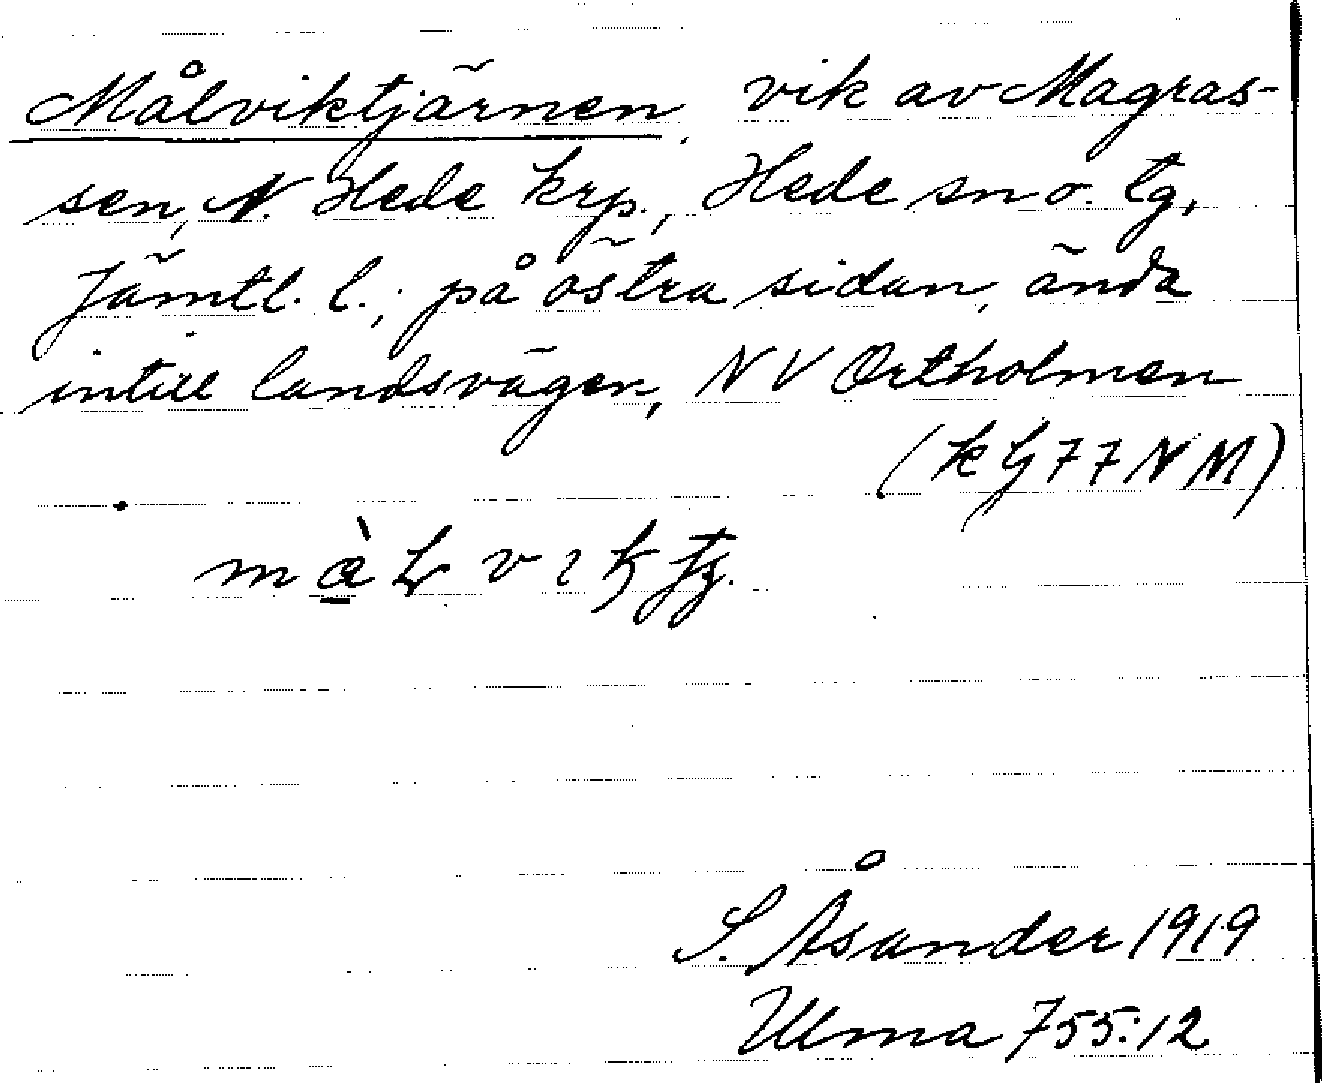 Målviktjärnen, vik av Magras-
sen, N. Hede krp., Hede sn o. tg,
Jämtl. l.; på östra sidan, ända
intill landsvägen, NV Ortholmen
(k G 77 N M)
S. Åsander 1919
Ulma 755:12